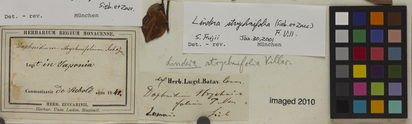 Sieb. et Zucc.
Det. - rev. München
Lindera strychnifolia (Sieb. et Zucc.)
F. Vill.
S. Fujii Jan. 30, 2001
Det. - rev. München
HERBARIUM REGIUM MONACENSE.
Daphnidium strychnifolium
Legit in Japonia
Communicavit De Siebold anno 1841.
HERB. ZUCCARINII.
Lindera strychnifolia Villar.
Herb. Lugd. Batav.
Daphnidium Strychni-
folium
imaged 2010